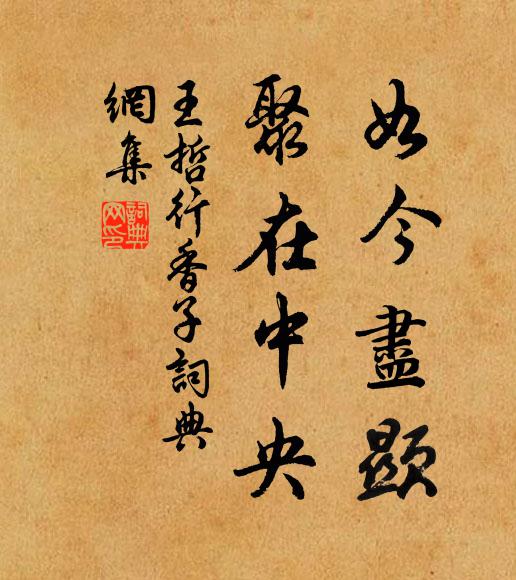 如今盡顯
聚在中央
王哲行香子詞典
網集
詞典
网印